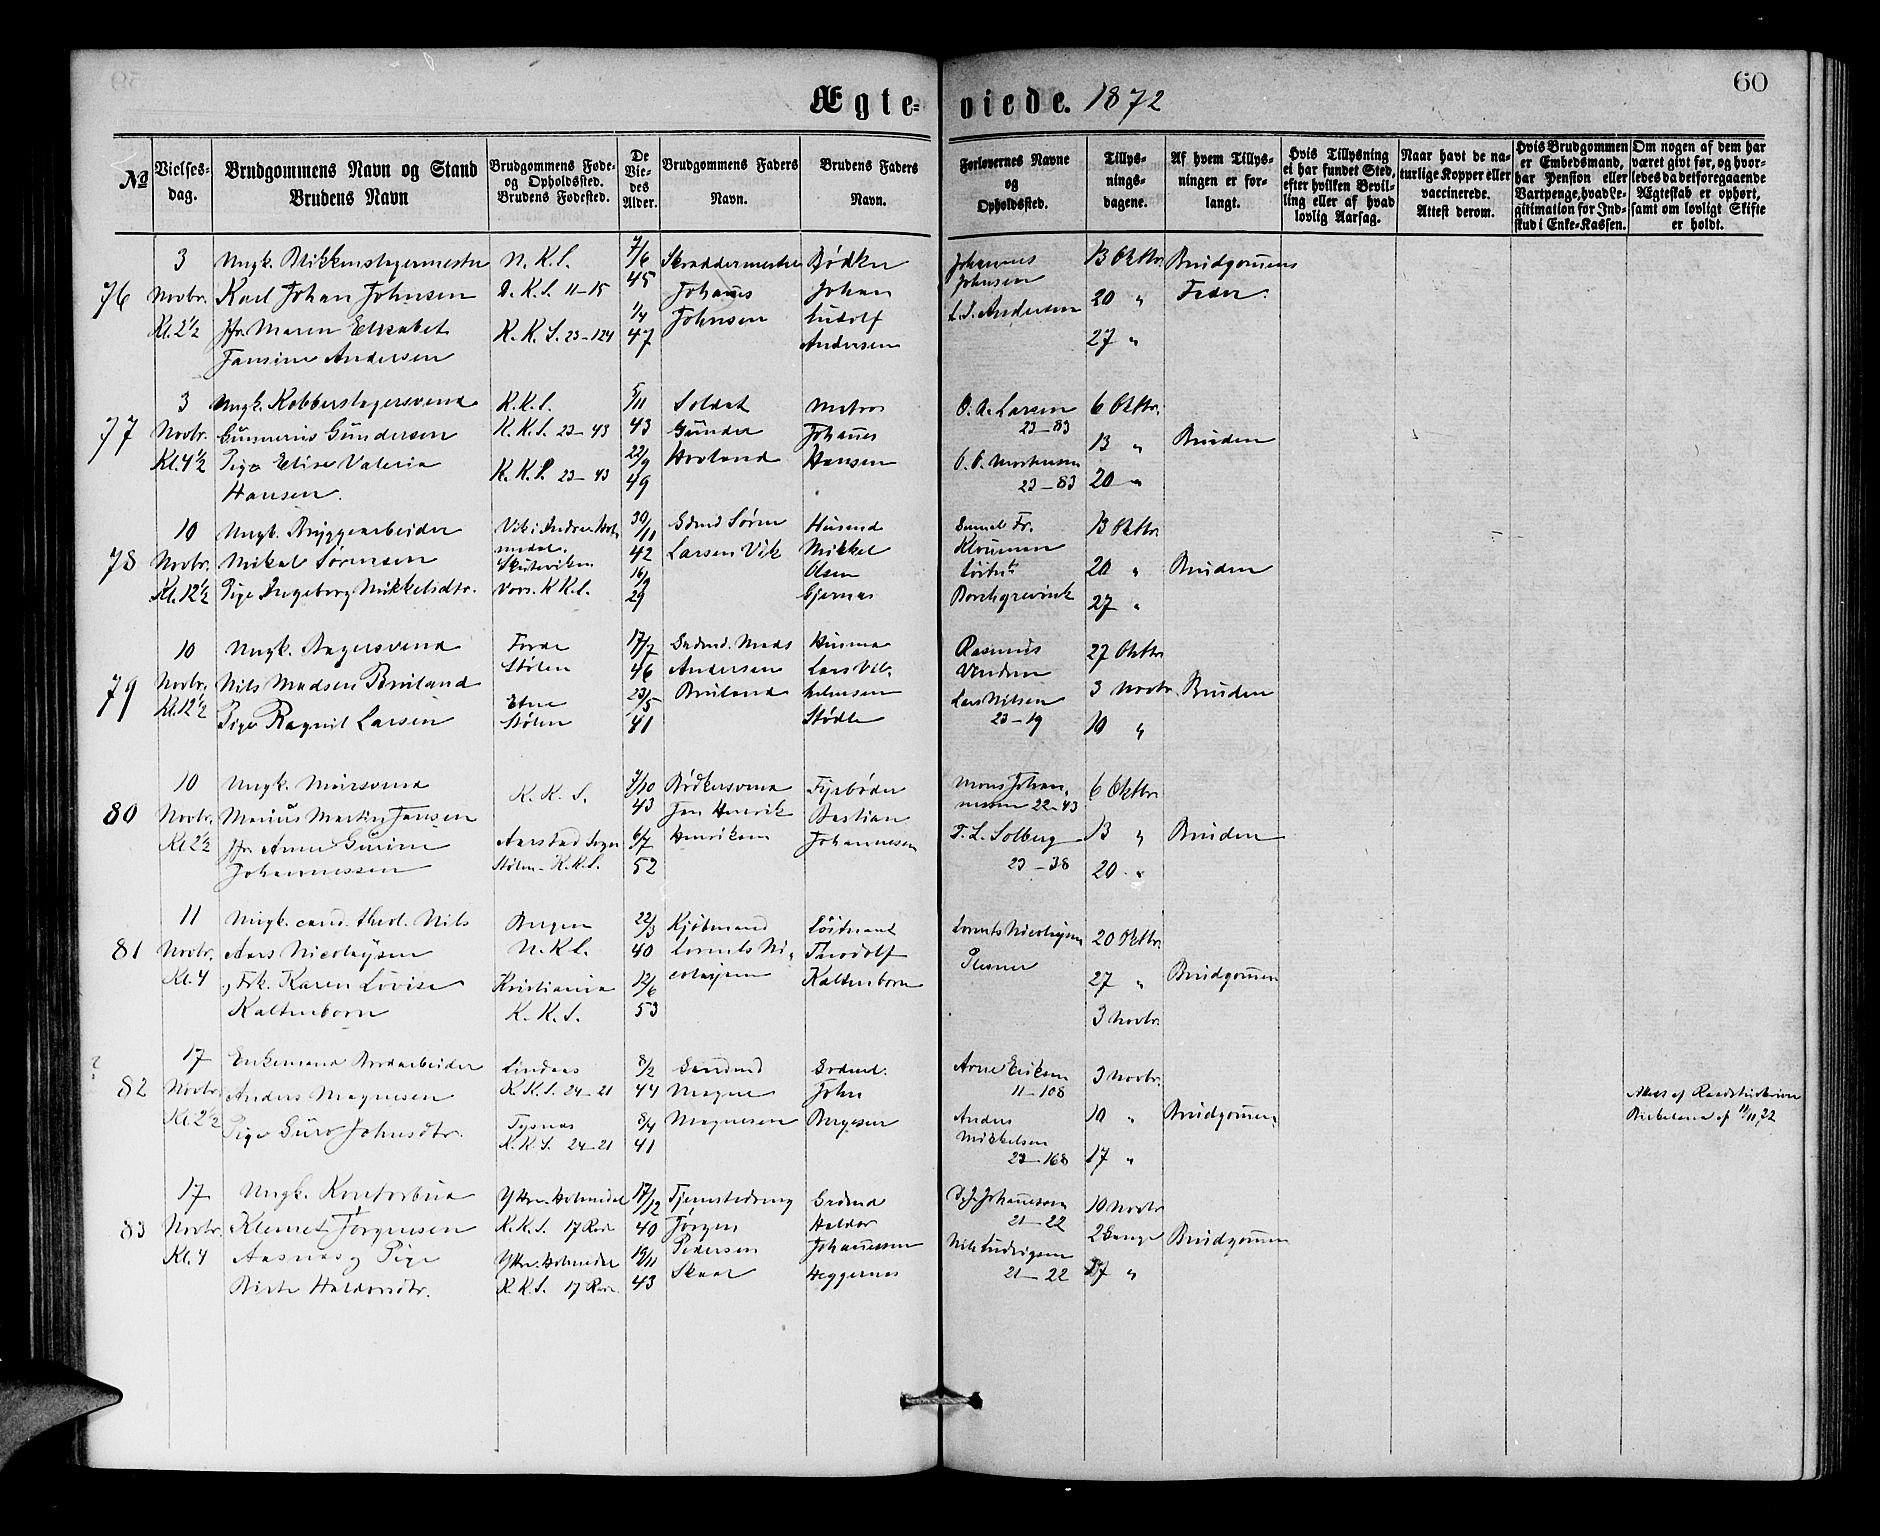 Ægte-viede. 1872
60
No
Vielses-dag.
Brudgommens Navn og Stand
Brudens Navn
Brudgommens Føde- og Opholdssted.
Brudens Fødested.
De Vie-des Alder.
Brudgommens Faders Navn.
Brudens Faders Navn.
Forlovernes Navne og Opholdssted.
Tillys-nings-dagene.
Af hvem Tillys-ningen er for-langt.
Hvis Tillysning ei har fundet Sted, efter hvilken Bevil-ling eller af hvad lovlig Aarsag.
Naar havt de na-turlige Kopper eller vaccinerede. Attest derom.
Hvis Brudgommen er Embedsmand, har Pension eller Vartpenge, hvad Le-gitimation for Ind-skud i Enke-Kassen.
Om nogen af dem har været givt før, og hvor-ledes da det foregaaende Ægteskab er ophørt, samt om lovligt Skifte er holdt.
76
3 Novbr. Kl. 2½
Ungk. Blikkenslagermester
Karl Johan Johnsen
Jfr. Maren Elisabet
Jansine Andersen
N. K. S.
D. K. S. 11-15
K. K. S. 23-124
7/6 45
1/4 47
Skræddermester
Johanes
Johnsen
Bødker
Johan
Ludolf
Andersen
Johannes
Johnsen
L. J. Andersen
13 Oktbr.
20 "
27 "
Brudgomens
Fader.
77
3 Novbr. Kl. 4½
Ungk. Kobberslagersvend
Gunnerius Gundersen
Pige Elise Valeria
Hansen.
K. K. S.
K. K. S. 23-43
K. K. S. 23-43
5/11 43
22/9 49
Soldat
Gunder
Hovland
Matros
Johanes
Hansen
O. A. Larsen
23-83
23-83
6 Oktbr.
13 "
20 "
Bruden
78
10 Novbr. Kl. 12½
Ungk. Bryggearbeider
Mikal Sørensen
Pige Ingeborg Mikkelsdtr.
Skuteviken
Vors. K K S.
30/11 42
16/9 29
Gdmd Søren
Larsen Vik
Husmd
Mikkel
Olsen
Gjernes
Samuel Fr.
Klouman
Borchgrevink
13 Oktbr.
20 "
27 "
Bruden
79
10 Novbr. Kl. 12½
Ungk. Bagersvend
Nils Madsen Bruland
Pige Ragnil Larsen
Førde
Stølen
Etne
Stølen
17/7 46
23/5 41
Gadmd. Mads
Andersen
Bruland
Husma
Lars Vil-
helmsen
Stødle
Rasmus
Lars Nilsen
23-19
27 Oktbr.
3 Novbr.
10 "
Bruden
80
10 Novbr. Kl. 2½
Ungk. Mursvend
Marius Martin Jansen
Jfr. Anne Gurine
Johannessen
K. K. S.
Aarstad Sogn
Stølen - K. K. S.
7/10 43
6/7 52
Bødkersvend
Jan Henrik
Henriksen
Fyrbøder
Bastian
Johannesen
Mons Johan-
nesen 22-43
T. L. Solberg
23-38
6 Oktbr.
13 "
20 "
Bruden
81
11 Novbr. Kl. 4
Ungk. cand. theol. Nils
Aars Nicolaysen
Frk. Karen Lovise
Kaltenborn
Bergen
N. K. S.
Kristiania
K. K. S.
22/3 40
12/6 53
Kjøbmand
Lorents Ni-
colaysen
Løitnant
Theodolf
Kaltenborn
Lorents Nicolaysen
Plesner
20 Oktbr.
27 "
3 Novbr.
Brudgomen
82
17 Novbr. Kl. 2½
Enkemand Jordarbeider
Anders Magnesen
Pige Guro Johnsdtr.
Lindaas
K. K. S. 24-21
Tysnæs
K. K. S. 24-21
8/2 44
8/4 41
Gaardmd
Magne
Magnesen
Grdmd.
John
Børgesen
Arne Eriksen
11-108
Anders
Mikkelsen
23-168
3 Novbr.
10 "
17 "
Brudgomen
83
17 Novbr. Kl. 4
Ungk. Kontorbud
Klemet Jørgensen
Aasnes og Pige
Birte Haldorsdtr.
Yttre-Holmedal
K. K. S. 17 Rode
Yttre-Holmedal
K. K. S. 17 Rode
17/12 40
19/11 43
Tjenestedreng
Jørgen
Pedersen
Skaar
Grdmd
Haldor
Johanessen
Heggernes
D. J. Johanesen
21-22
Nils Ludvigsen
21-22
10 Novbr.
2 Gange
17 "
Brudgomen